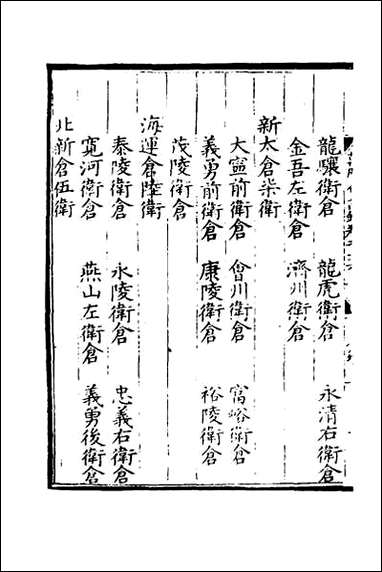 龍驤衛倉 龍虎衛倉 永清右衛倉
金吾左衛倉 濟州衛倉
新太倉柒衛
大寧前衛倉 會州衛倉 富峪衛倉
義勇前衛倉 康陵衛倉 裕陵衛倉
茂陵衛倉
海運倉陸衛
泰陵衛倉 永陵衛倉 忠義右衛倉
寬河衛倉 燕山左衛倉 義勇後衛倉
北新倉伍衛